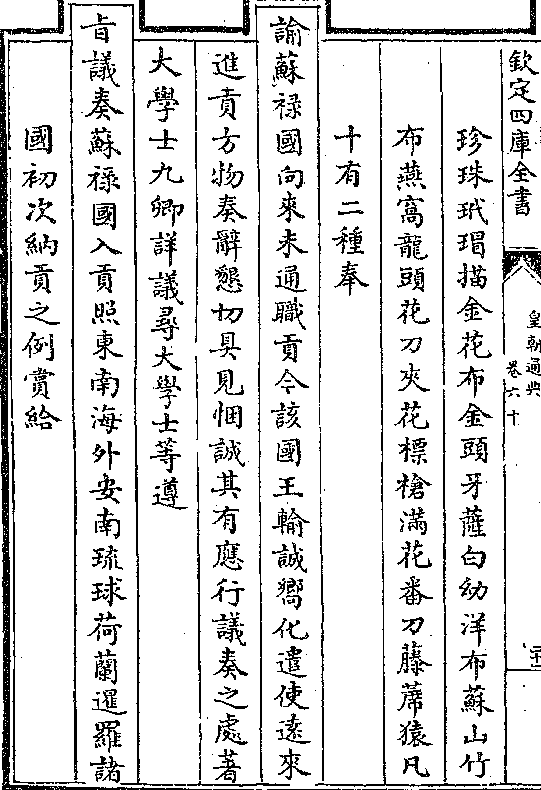 欽定四庫全書
皇朝通典
卷六十
珍珠玳瑁描金花布金頭牙薩白幼洋布蘇山竹
布燕窩龍頭花刀夾花標槍滿花番刀藤蓆猿凡
十有二種奉
諭蘇祿國向來未通職貢今該國王輸誠嚮化遣使遠來
進貢方物奏辭懇切具見悃誠其有應行議奏之處著
大學士九卿詳議尋大學士等遵
旨議奏蘇祿國入貢照東南海外安南琉球荷蘭暹羅諸
國初次納貢之例賞給